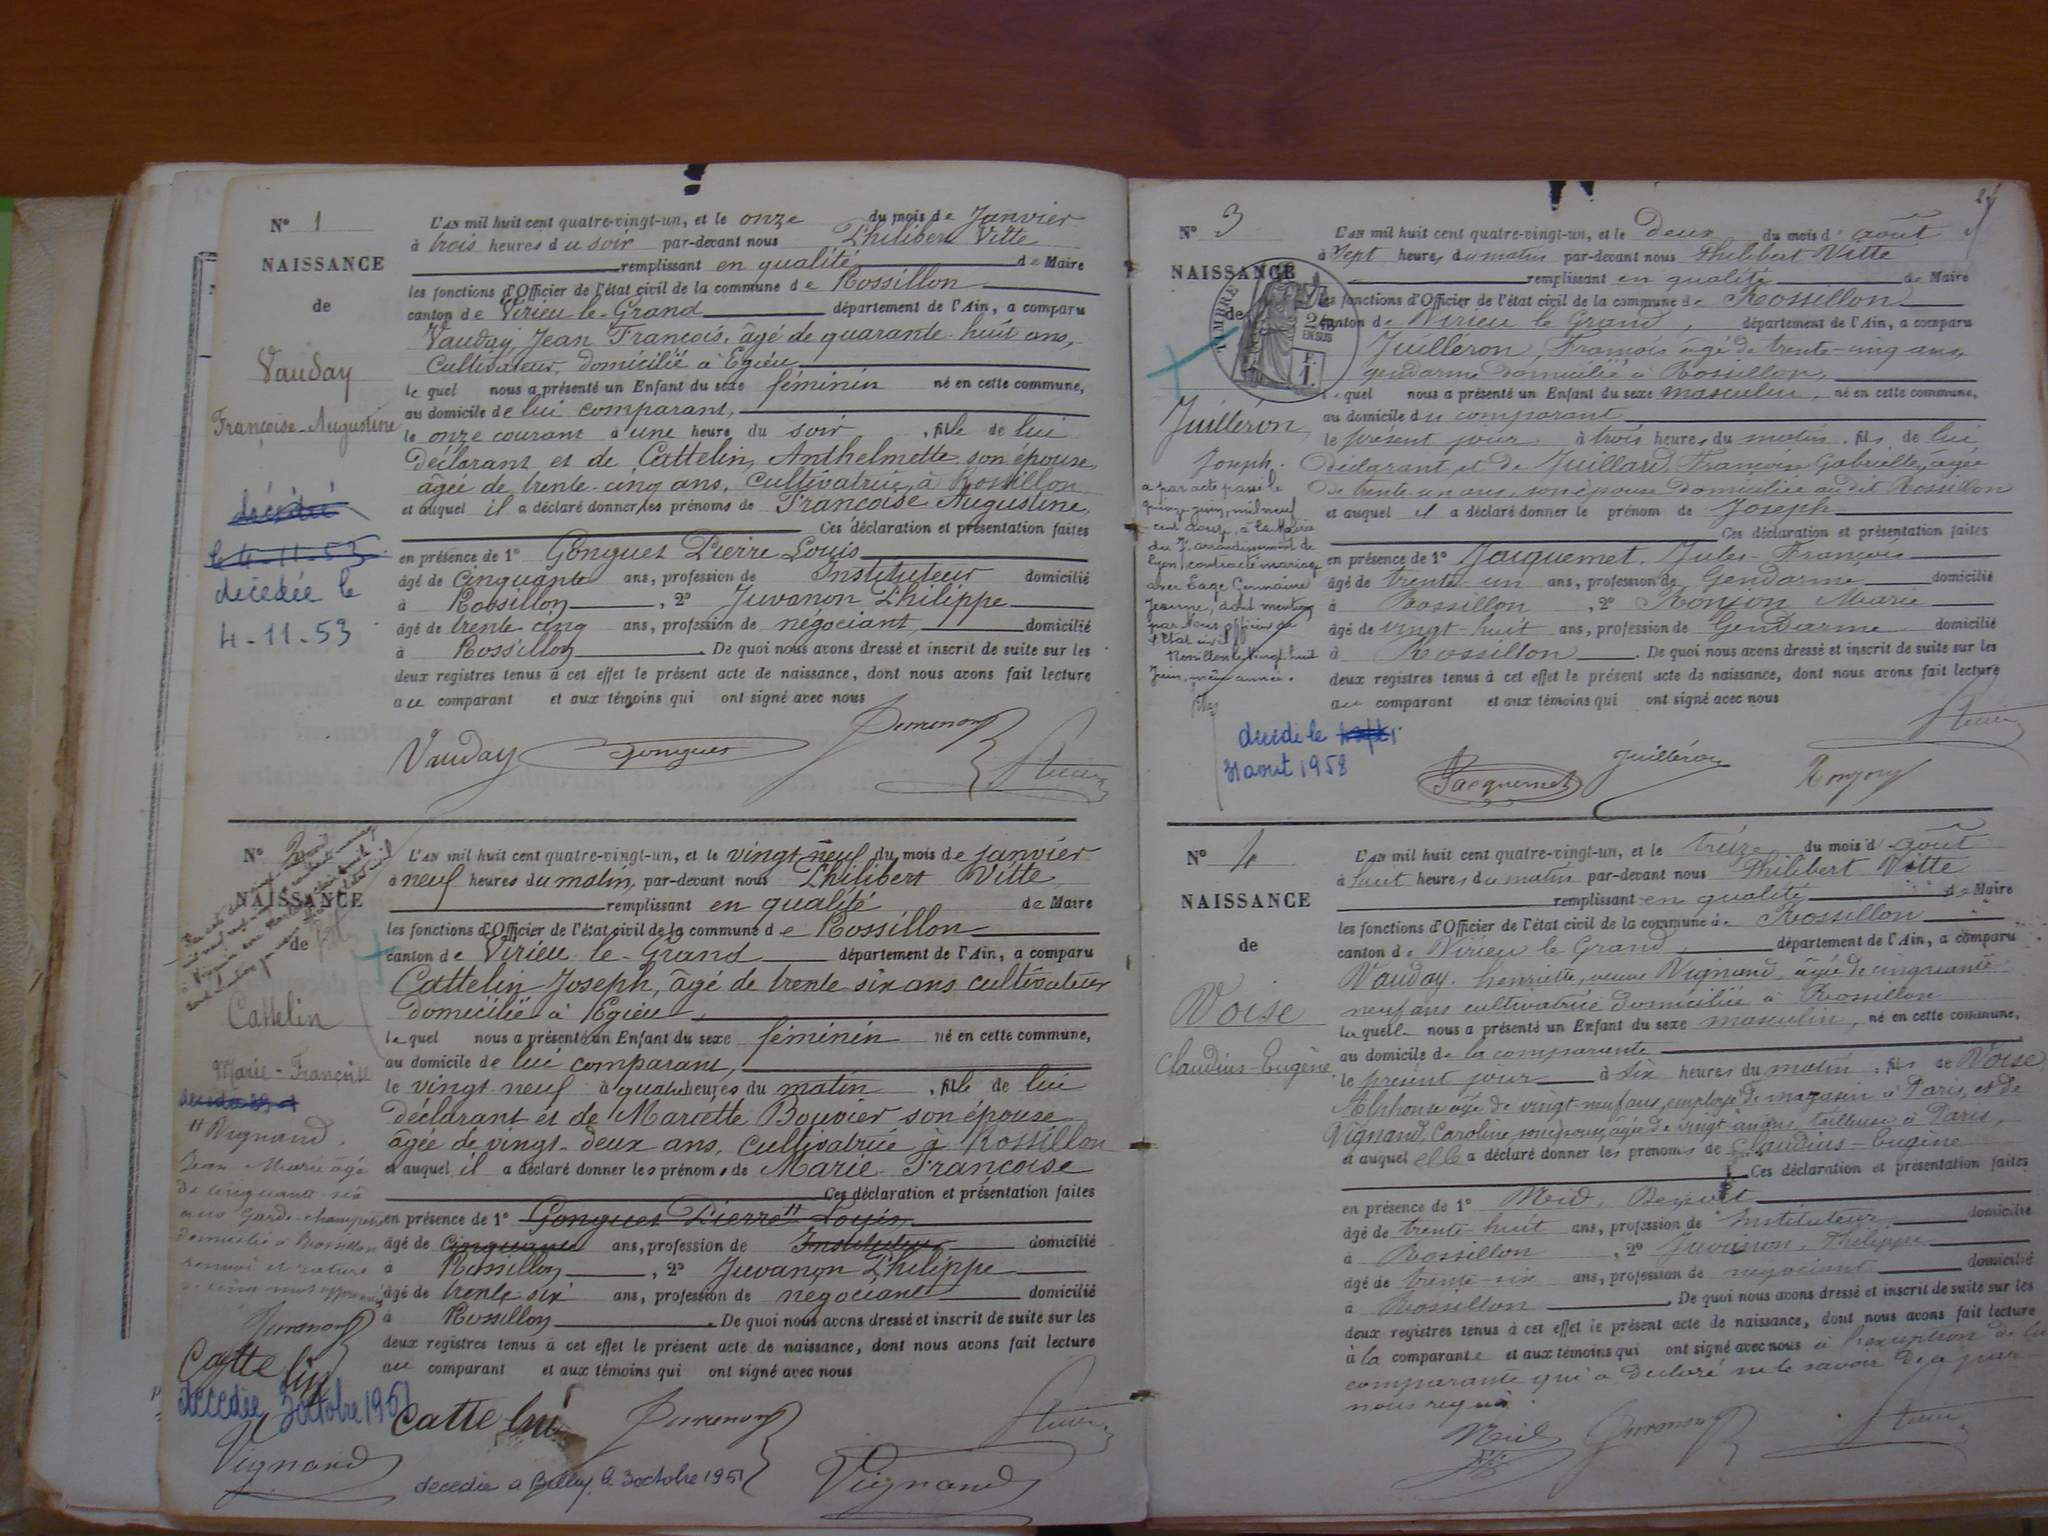 N° 1
NAISSANCE
de
Vauday
Françoise-Augustine
décédé
le 4-11-53
décédée le
4-11-53
L'AN mil huit cent quatre-vingt-un, et le onze du mois de Janvier
à trois heures du soir par-devant nous Philibert Vitte
remplissant en qualité de Maire
les fonctions d'Officier de l'état civil de la commune de Rossillon
canton de Virieu-le-Grand département de l'Ain, a comparu
Vauday Jean François, âgé de quarante-huit ans,
Cultivateur, domicilié à Egieu
lequel nous a présenté un Enfant du sexe féminin né en cette commune,
au domicile de lui comparant,
le onze courant à une heure du soir, fille de lui
déclarant et de Cattelin, Anthelmette son épouse,
âgée de trente-cinq ans, Cultivatrice, à Rossillon
et auquel il a déclaré donner les prénoms de Françoise Augustine,
Ces déclaration et présentation faites
en présence de 1° Gonguet Pierre Louis
âgé de Cinquante ans, profession de Instituteur domicilié
à Rossillon, 2° Juvanon Philippe
âgé de trente cinq ans, profession de négociant, domicilié
à Rossillon. De quoi nous avons dressé et inscrit de suite sur les
deux registres tenus à cet effet le présent acte de naissance, dont nous avons fait lecture
au comparant et aux témoins qui ont signé avec nous
Vauday Gonguet Juvanon
N° 2
NAISSANCE
de
Cattelin
Marie-Françoise
tt Vignand,
Jean Marie âgé
de cinquante six
ans Garde-champêtre
domicilié à Rossillon
renvoi et rature
de cinq mots approuvés
Juvanon
Cattelin
décédée 3 octobre 1961
Vignand
L'AN mil huit cent quatre-vingt-un, et le vingt neuf du mois de janvier
à neuf heures du matin, par-devant nous Philibert Vitte
remplissant en qualité de Maire
les fonctions d'Officier de l'état civil de la commune de Rossillon
canton de Virieu-le-Grand département de l'Ain, a comparu
Cattelin Joseph, âgé de trente six ans cultivateur
domicilié à Egieu,
lequel nous a présenté un Enfant du sexe féminin né en cette commune,
au domicile de lui comparant,
le vingt neuf à quatre heures du matin, fille de lui
déclarant et de Mariette Bouvier son épouse
âgée de vingt-deux ans, cultivatrice à Rossillon
et auquel il a déclaré donner les prénoms de Marie-Françoise
Ces déclaration et présentation faites
en présence de 1° Gonguet Pierre tt Louis
âgé de cinquante ans, profession de Instituteur domicilié
à Rossillon, 2° Juvanon Philippe
âgé de trente six ans, profession de négociant domicilié
à Rossillon. De quoi nous avons dressé et inscrit de suite sur les
deux registres tenus à cet effet le présent acte de naissance, dont nous avons fait lecture
au comparant et aux témoins qui ont signé avec nous
Cattelin Juvanon
décédée a Belley le 3 octobre 1961 Vignand
N° 3
NAISSANCE
de
TIMBRE
EN SUS
Juilléron
Joseph.
a par acte passé le
quinze juin, mil neuf
cent douze, à la Mairie
du 7e arrondissement de
Lyon, contracté mariage
avec Sage Germaine
Jeanne, dont mention
par nous officier de
l'Etat civil
Rossillon le vingt huit
Juin, même année.
décédé le
31 aout 1958
L'AN mil huit cent quatre-vingt-un, et le deux du mois d'août
à sept heures du matin par-devant nous Philibert Vitte
remplissant en qualité de Maire
les fonctions d'Officier de l'état civil de la commune de Rossillon
canton de Virieu le Grand, département de l'Ain, a comparu
Juilleron, François âgé de trente-cinq ans,
gendarme domicilié à Rossillon,
lequel nous a présenté un Enfant du sexe masculin, né en cette commune,
au domicile du comparant
le présent jour à trois heures du matin, fils de lui
déclarant et de Juillard Françoise Gabrielle, âgée
de trente-un ans, son épouse domiciliée audit Rossillon
et auquel il a déclaré donner le prénom de Joseph
Ces déclaration et présentation faites
en présence de 1° Jacquemet, Jules-François
âgé de trente-un ans, profession de Gendarme domicilié
à Rossillon, 2° Ronjon Marie
âgé de vingt-huit ans, profession de Gendarme domicilié
à Rossillon. De quoi nous avons dressé et inscrit de suite sur les
deux registres tenus à cet effet le présent acte de naissance, dont nous avons fait lecture
au comparant et aux témoins qui ont signé avec nous
Jacquemet Juilléron Ronjon
N° 4
NAISSANCE
de
Voise
Claudius-Eugène
L'AN mil huit cent quatre-vingt-un, et le treize du mois d'août
à huit heures du matin par-devant nous Philibert Vitte
remplissant en qualité de Maire
les fonctions d'Officier de l'état civil de la commune de Rossillon
canton de Virieu le Grand, département de l'Ain, a comparu
Vauday, henriette, veuve Vignand, âgée de cinquante
neuf ans cultivatrice domiciliée à Rossillon
laquelle nous a présenté un Enfant du sexe masculin, né en cette commune,
au domicile de la comparante
le présent jour à six heures du matin, fils de Voise
Alphonse âgé de vingt-neuf ans, employé de magasin à Paris, et de
Vignand, Caroline, son épouse, âgée de vingt ans, tailleuse à Paris,
et auquel elle a déclaré donner les prénoms de Claudius-Eugène
Ces déclaration et présentation faites
en présence de 1° Benoit
âgé de trente-huit ans, profession de Instituteur domicilié
à Rossillon, 2° Juvanon, Philippe
âgé de trente-six ans, profession de négociant domicilié
à Rossillon. De quoi nous avons dressé et inscrit de suite sur les
deux registres tenus à cet effet le présent acte de naissance, dont nous avons fait lecture
à la comparante et aux témoins qui ont signé avec nous à l'exception de la
comparante qui a déclaré ne le savoir de ce par
nous requis
Juvanon